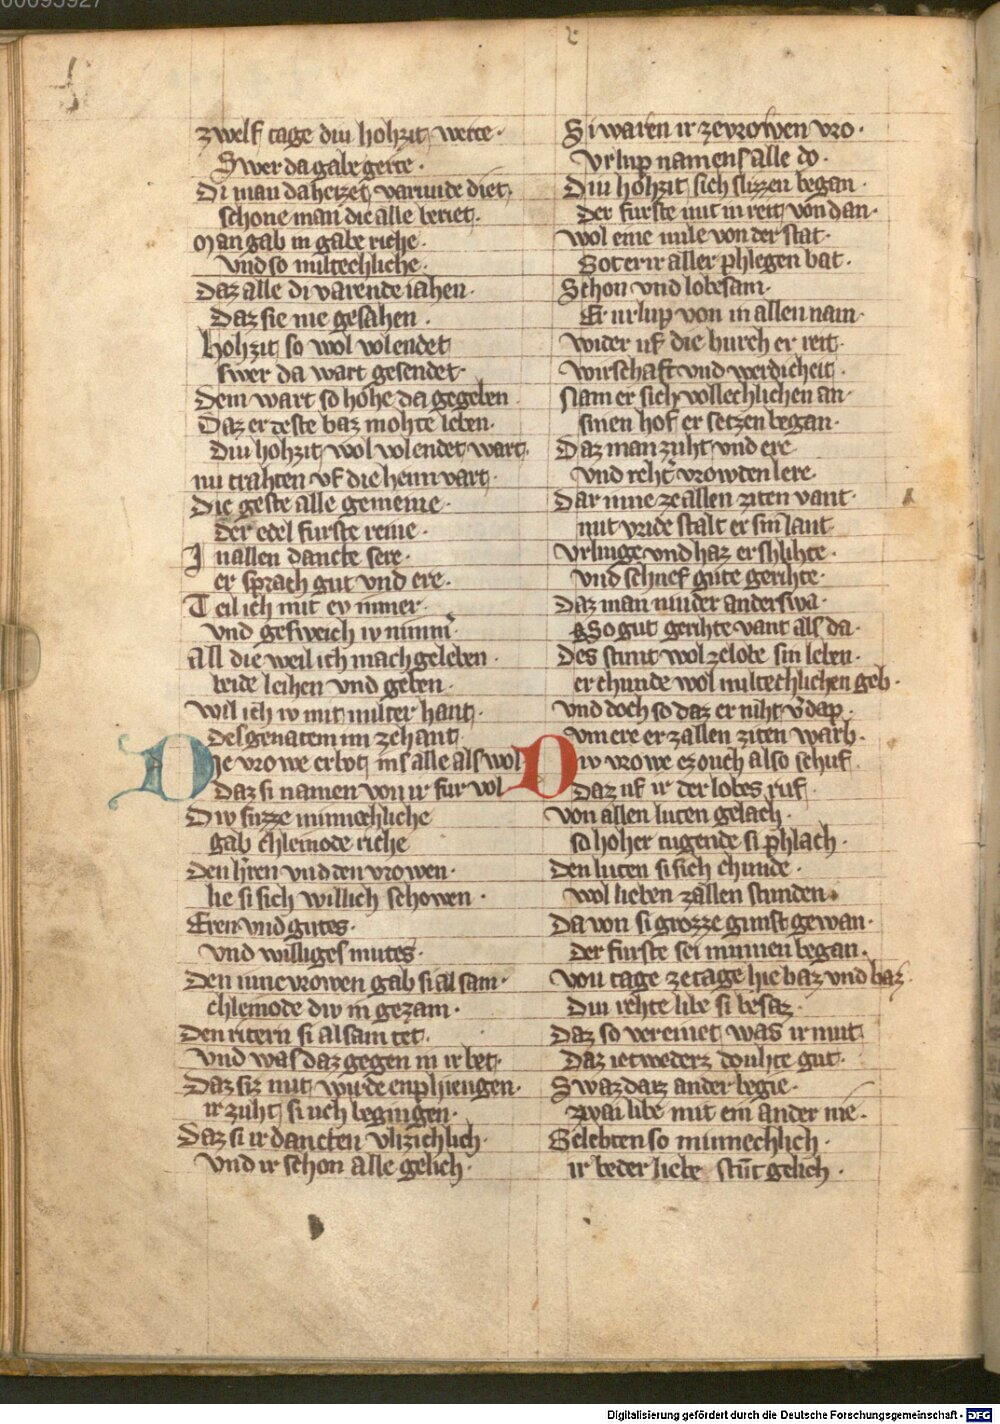 zwelf tage diu hohzit werte ·
Swer da gabe gerte ·
Di man da heizet varnnde diet ·
schone man die alle beriet ·
Man gab in gabe riche ·
vnd so miltechliche ·
Daz alle di varende iahen ·
Daz sie nie gesahen ·
hohzit so wol volendet
swer da wart gesendet ·
Dem wart so hohe da gegeben
Daz er deste baz mohte leben ·
Diu hohzit wol volendet wart ·
nu trahten vf die heim vart ·
Die geste alle gemeine ·
der edel furste reine ·
In allen dancte sere ·
er sprach gut vnd ere ·
Teil ich mit ev immer ·
vnd gesweich iv nimm̄
All die weil ich mach geleben ·
beide leihen vnd geben ·
wil ich iv mit milter hant ·
des genatem im zehant
Die vrowe erbot ins alle als wol
Daz si namen von ir fur vol
Div suzze minnechliche
gab chleinode riche
den h̄ren vnd den vrowen ·
lie si sich willich schowen ·
Eren vnd gutes ·
vnd williges mutes ·
Den iunevrowen gab si al sam ·
chleinode div in gezam ·
Den ritern si alsam tet ·
vnd was daz gegen in ir bet ·
Daz siz mit wirde enphiengen ·
ir zuht si uch begingen ·
Daz si ir dancten vlizichlich ·
vnd ir schon alle gelich ·
Si waren ir zevrowen vro ·
Vrlup namens alle do ·
Diu hohzit sich slizzen began ·
der furste mit in reit von dan ·
wol eine mile von der stat ·
Got er ir aller phlegen bat ·
Schon vnd lobesam ·
Er urlup von in allen nam ·
wider uf die burch er reit ·
wirschaft vnd werdicheit ·
Nam er sich vollechlichen an ·
sinen hof er setzen began ·
Daz man zuht vnd ere
vnd reht vrowden lere ·
Dar inne ze allen ziten vant ·
mit vride stalt er sin lant
Vrliuge vnd haz er slihte ·
vnd schuef gute gerihte ·
Daz man ninder anderswa ·
So gut gerihte vant als da ·
Des stunt wol zelobe sin leben ·
er chunde wol miltechlichen geb ·
vnd doch so daz er niht v̄dap ·
vm ere er zallen ziten warb ·
Div vrowe ez ouch also schuf
Daz uf ir der lobes ruf
von allen luten gelach ·
so hoher tugende si phlach ·
den luten si sich chunde ·
wol lieben zallen stunden ·
Da von si grozze gunst gewan ·
der furste sei minnen began ·
von tage zetage hie baz vnd baz
Diu rehte libe si besaz
Daz so vereinet was ir mut
Daz ietwederz douhte gut ·
Swaz darz ander begie ·
zwai libe mit ein ander nie ·
Gelebten so minnechlich ·
ir beder liebe stūt gelich ·
Digitalisierung gefördert durch die Deutsche Forschungsgemeinschaft - DFG